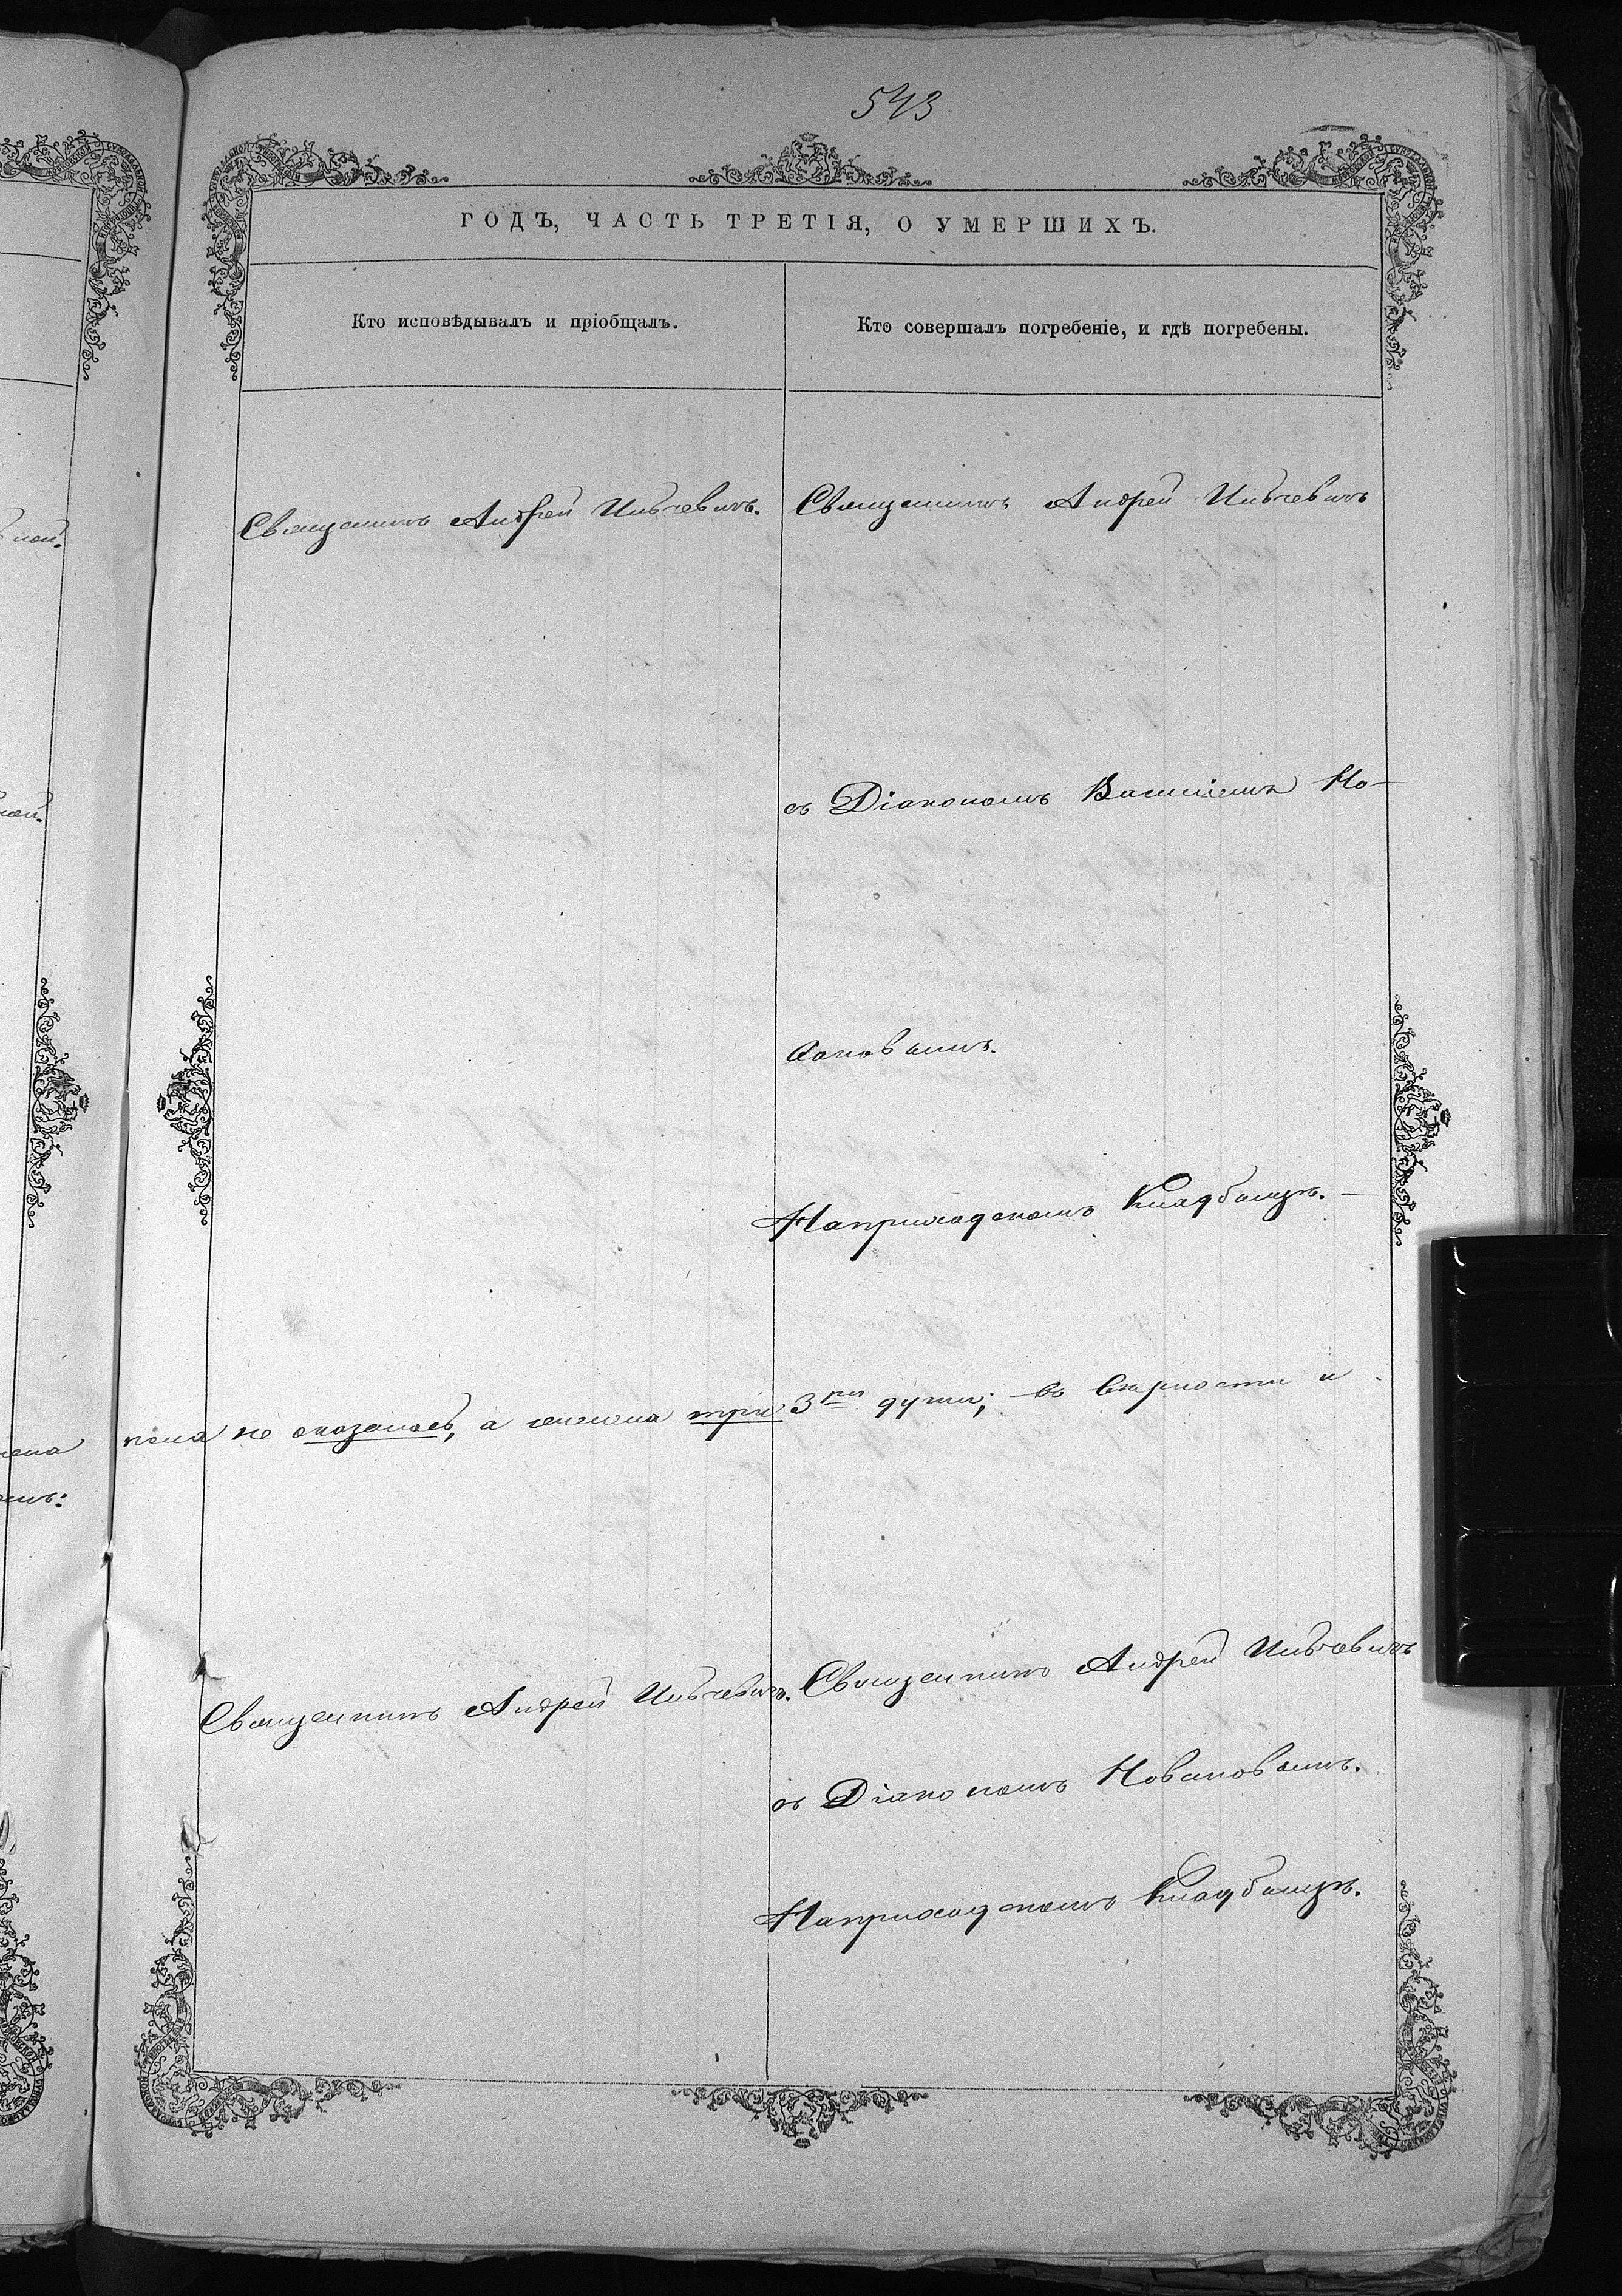 543
ГОДЪ, ЧАСТЬ ТРЕТІЯ, О УМЕРШИХЪ.
Кто исповѣдывалъ и пріобщалъ.
Кто совершалъ погребеніе, и гдѣ погребены.
Священникъ Андрей
Священникъ Андрей
съ Діакономъ Василіемъ Но-
ваковымъ.
На приходскомъ Кладбищѣ. —
пола не оказалось, а женска три 3 души; въ вѣрности и
Священникъ Андрей
Священникъ Андрей
съ Діакономъ Новаковымъ.
На приходскомъ Кладбищѣ.